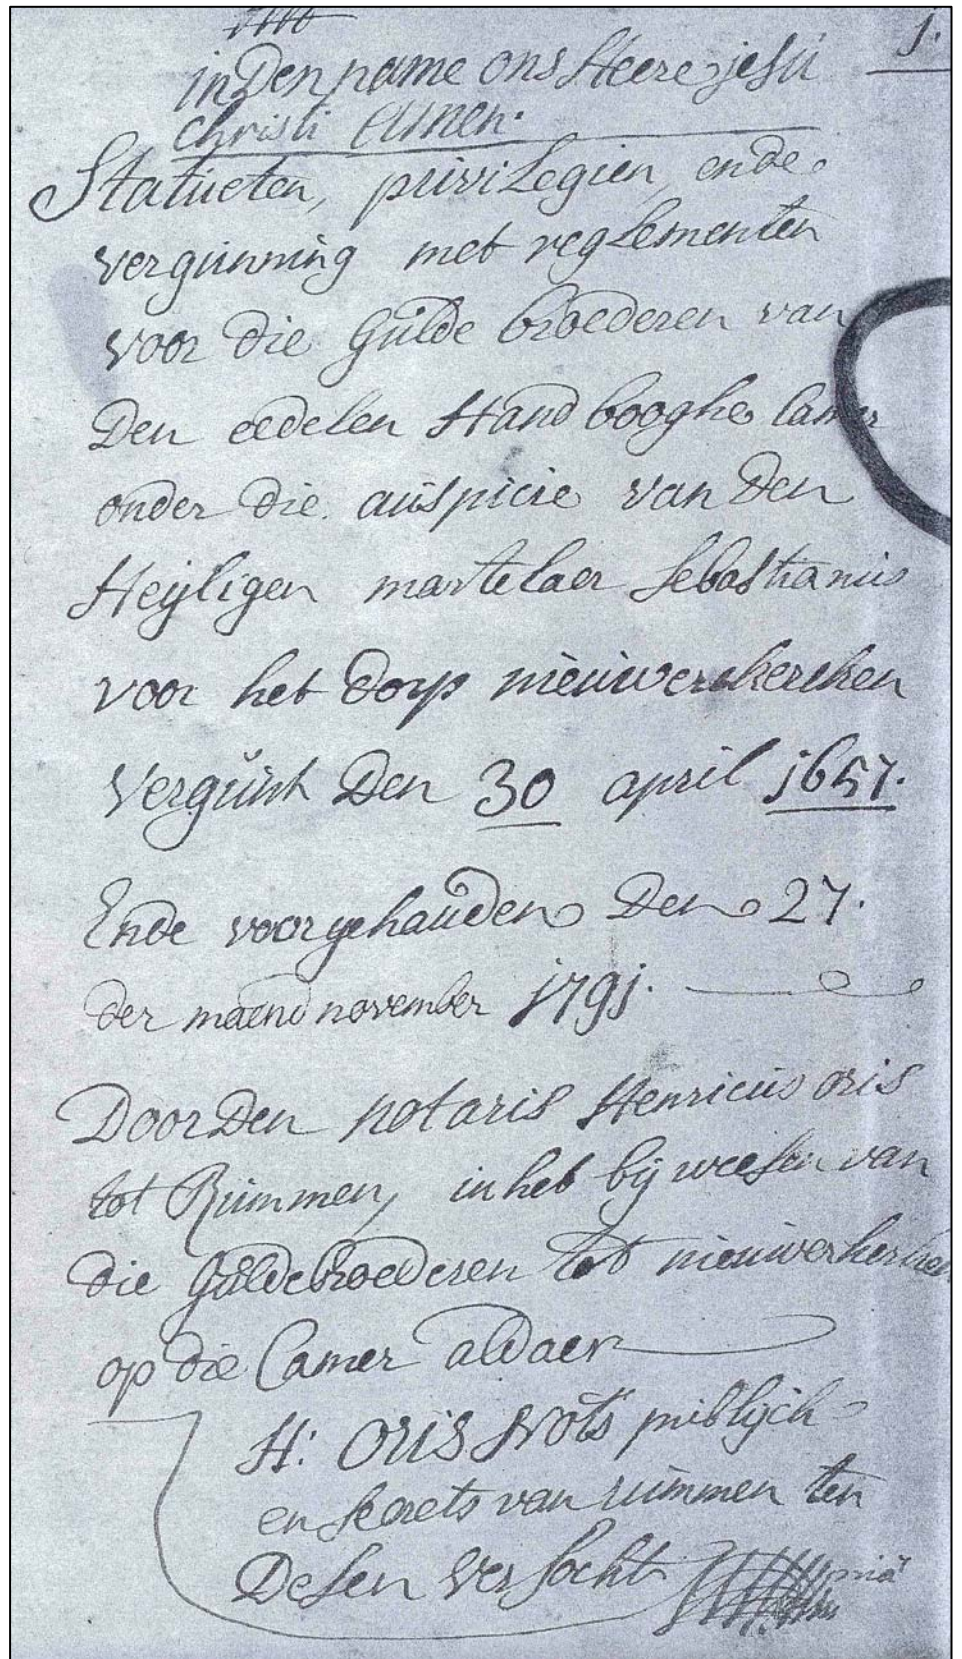 1.
in Den name ons Heere jesu
christi Amen.
Statueten, privilegien ende
vergunning met reglementen
voor die Gulde broederen van
Den eedelen Handbooghe Camer
onder die auspicie van Den
Heyligen martelaer Sebastianus
voor het Dorp nieuwerckercken
vergunt Den 30 april 1657.
Ende voorgehauden Den 27.
der maend november 1791.
Door Den notaris Henricus oris
tot Rummen, in het bij weesen van
die Guldebroederen tot nieuwerkercken
op die Camer aldaer
H: Oris Nots publijck
en secrets van rummen ten
Desen versocht